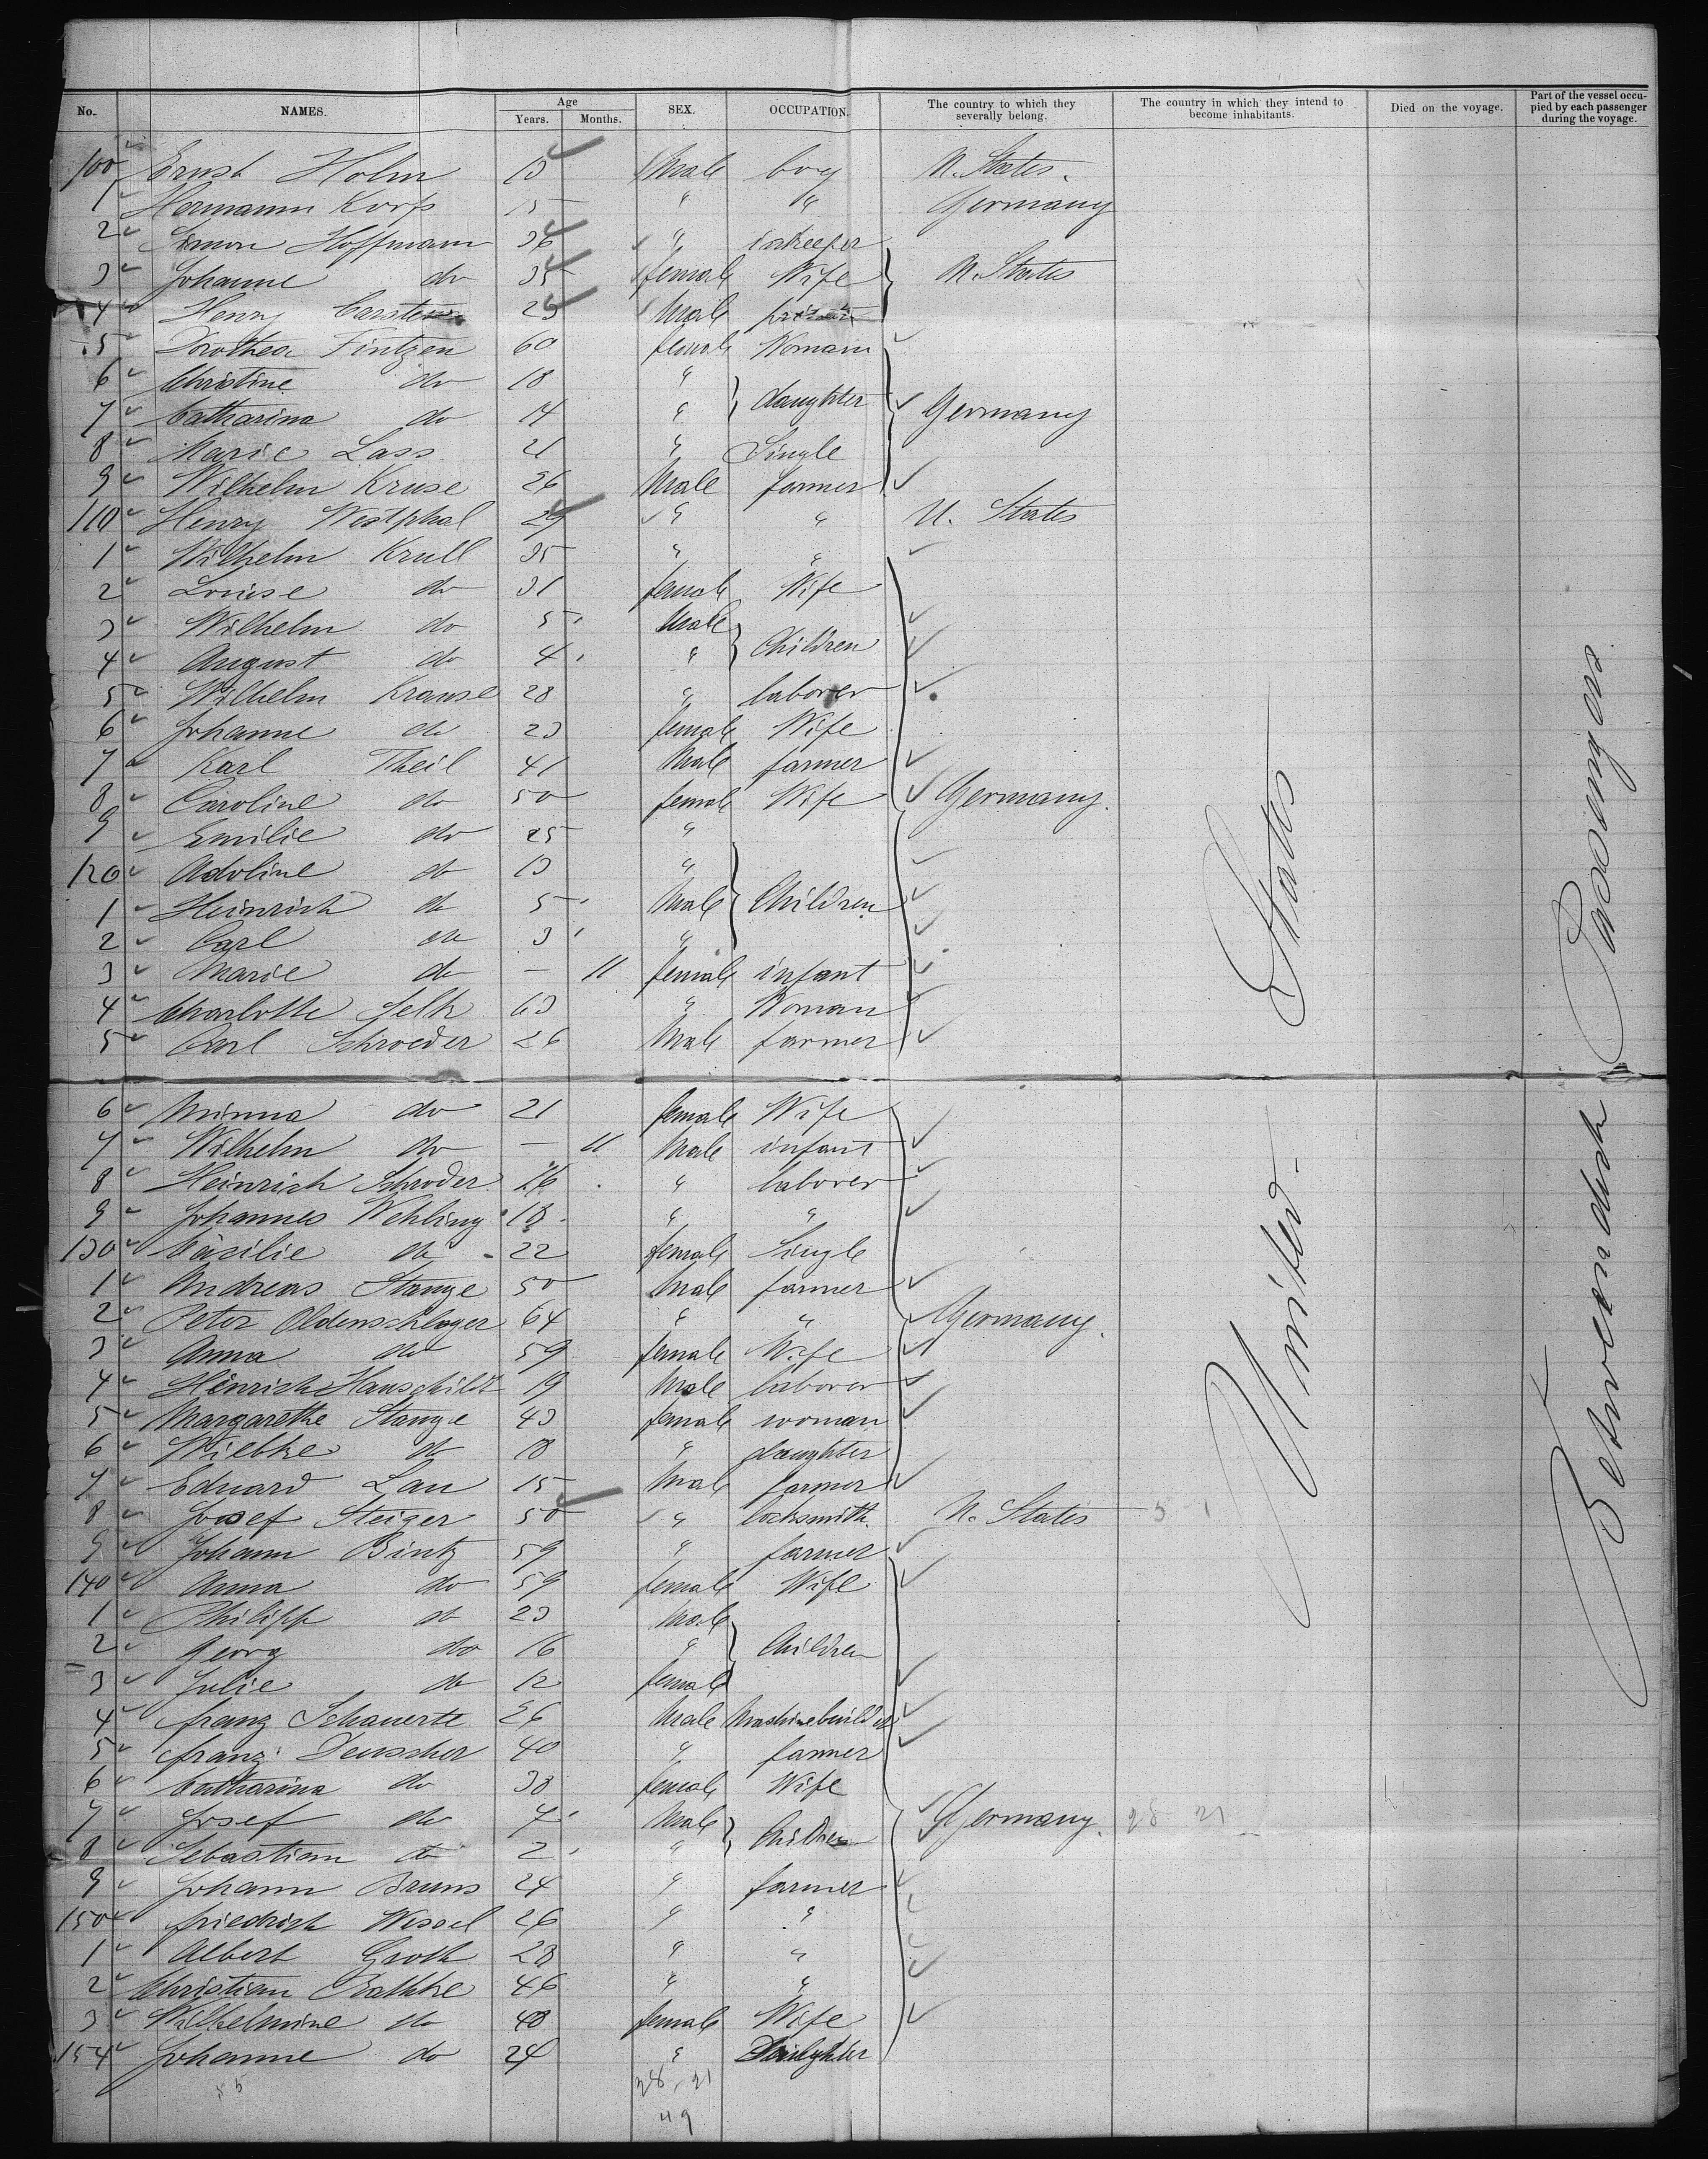 No. NAMES. Age Years. Months. SEX. OCCUPATION. The country to which they severally belong. The country in which they intend to become inhabitants. Died on the voyage. Part of the vessel occupied by each passenger during the voyage.
100 Ernst Holm 13 Male boy U. States.
1 Hermann Korfs 15 " " Germany
2 Simon Hoffmann 36 " inkeeper
3 Johanne do 35 female Wife U. States
4 Henry Carsten 23 Male
5 Dorothea Fintzen 60 female Woman
6 Christine do 18 "
daughter
7 Catharina do 14 " Germany
8 Marie Lass 21 " Single
9 Wilhelm Kruse 26 Male farmer
110 Henry Westphal 29 " " U. States
1 Wilhelm Krull 35 " "
2 Louise do 31 female Wife
3 Wilhelm do 5 Male
4 August do 4 " Children
5 Wilhelm Krause 28 " laborer
6 Johanne do 23 female Wife
7 Karl Theil 41 Male farmer
8 Caroline do 50 female Wife Germany.
9 Emilie do 25 "
120 Adoline do 13 "
1 Heinrich do 5 Male Children
2 Carl do 3 "
3 Marie do — 11 female infant
4 Charlotte Selk 63 " Woman
5 Carl Schroeder 26 Male farmer
6 Minna do 21 female Wife
7 Wilhelm do — 11 Male infant
8 Heinrich Schroder 26 " laborer
9 Johannes Wehling 18 " "
130 Cäzilie do 22 female Single
1 Andreas Stange 50 Male farmer
2 Peter Oldenschlager 64 " " Germany.
3 Anna do 59 female Wife
4 Hinrich Hauschildt 19 Male laborer
5 Margarethe Stange 43 female woman
6 Wiebke do 18 " daughter
7 Eduard Lau 15 Male farmer
8 Josef Steiger 50 " locksmith. U. States
9 Johann Bintz 59 " farmer
140 Anna do 59 female Wife
1 Philipp do 23 Male
2 Georg do 16 " Children
3 Julie do 12 female
4 franz Schauerte 26 Male Mashinebuilder
5 franz Deuscher 40 " farmer
6 Catharina do 38 female Wife
7 Josef do 7 Male Germany. 28 21
8 Sebastian do 2 " Children
9 Johann Bruns 24 " farmer
150 friedrich Wessel 26 " "
1 Albert Groth 28 " "
2 Christian Rathke 46 " "
3 Wilhelmine do 48 female Wife
154 Johanne do 24 " Daughter
55 28, 21
49
United States
Betweendeck Passengers